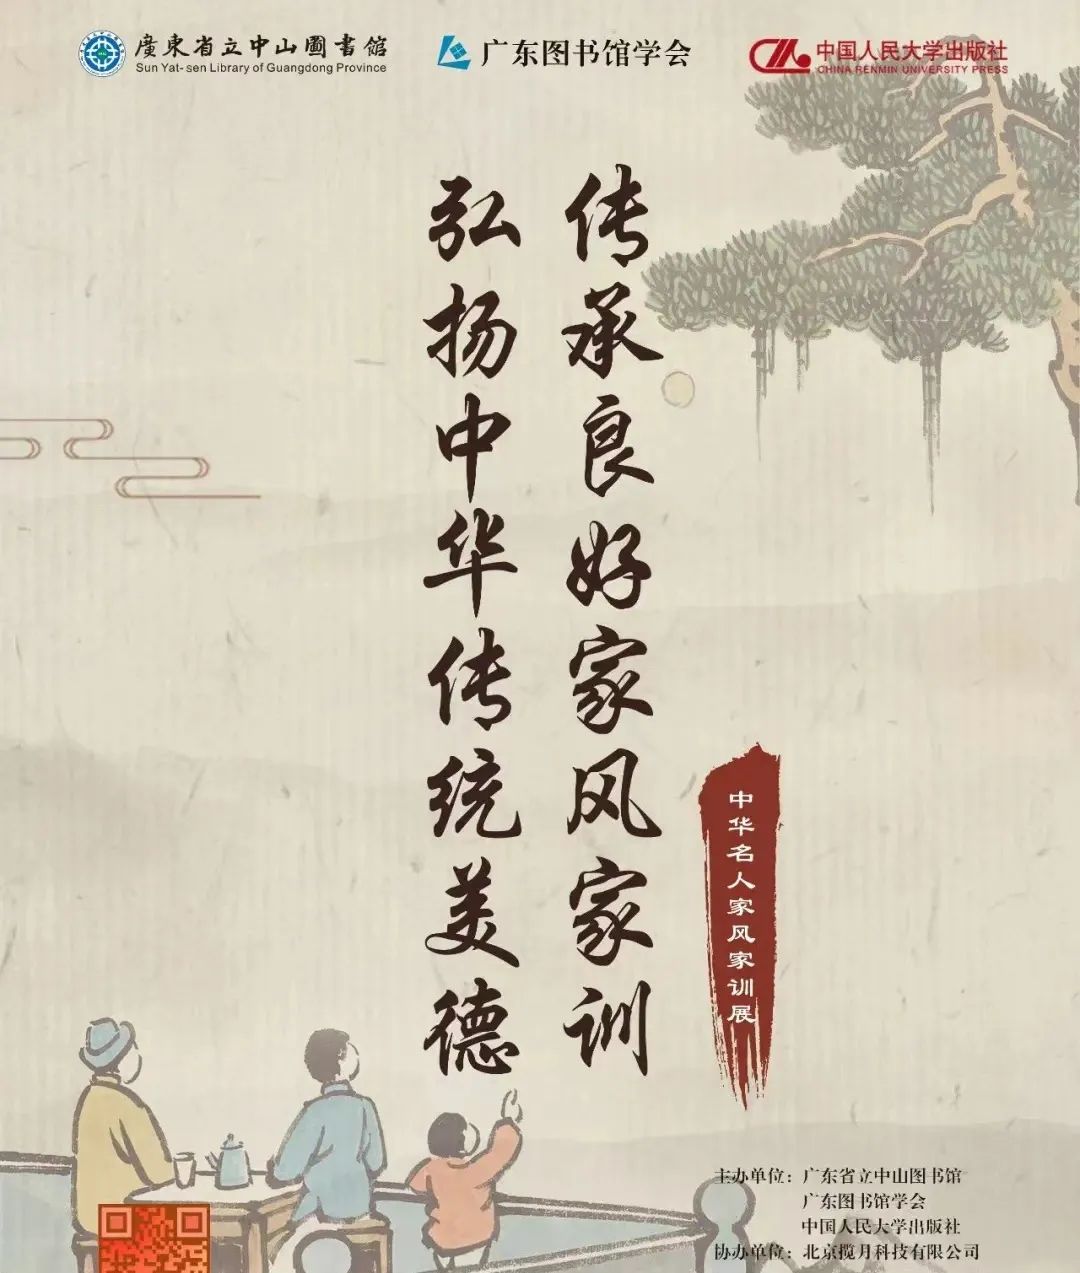 廣東省立中山圖書館
Sun Yat-sen Library of Guangdong Province
广东图书馆学会
中国人民大学出版社
CHINA RENMIN UNIVERSITY PRESS
传承良好家风家训
弘扬中华传统美德
中华名人家风家训展
主办单位：广东省立中山图书馆
广东图书馆学会
中国人民大学出版社
协办单位：北京揽月科技有限公司